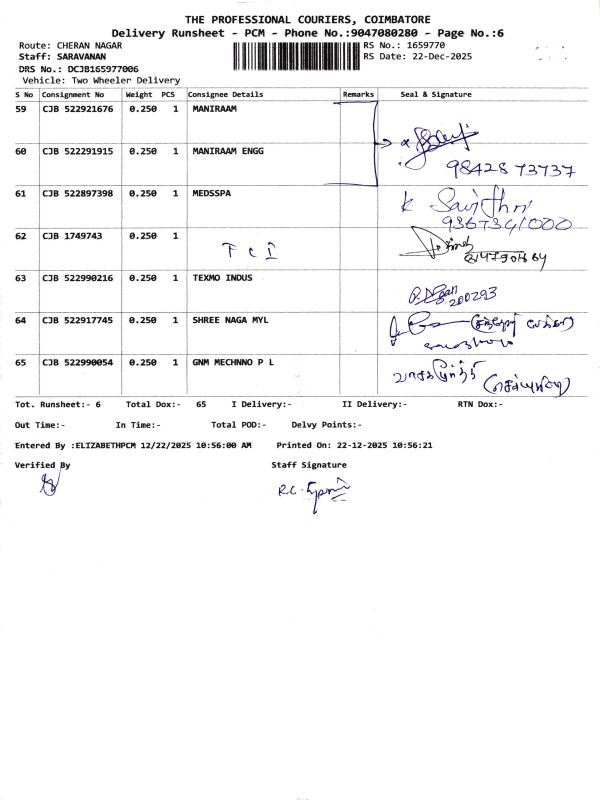 THE PROFESSIONAL COURIERS, COIMBATORE
Delivery Runsheet - PCM - Phone No.:9047080280 - Page No.:6
Route: CHERAN NAGAR RS No.: 1659770
Staff: SARAVANAN RS Date: 22-Dec-2025
DRS No.: DCJB165977006
Vehicle: Two Wheeler Delivery
S No Consignment No Weight PCS Consignee Details Remarks Seal & Signature
59 CJB 522921676 0.250 1 MANIRAAM
60 CJB 522291915 0.250 1 MANIRAAM ENGG
98428 73737
61 CJB 522897398 0.250 1 MEDSSPA K
9367341000
62 CJB 1749743 0.250 1
T C I
63 CJB 522990216 0.250 1 TEXMO INDUS
200293
64 CJB 522917745 0.250 1 SHREE NAGA MYL
65 CJB 522990054 0.250 1 GNM MECHNNO P L
Tot. Runsheet:- 6 Total Dox:- 65 I Delivery:- II Delivery:- RTN Dox:-
Out Time:- In Time:- Total POD:- Delvy Points:-
Entered By :ELIZABETHPCM 12/22/2025 10:56:00 AM Printed On: 22-12-2025 10:56:21
Verified By Staff Signature
R.C.